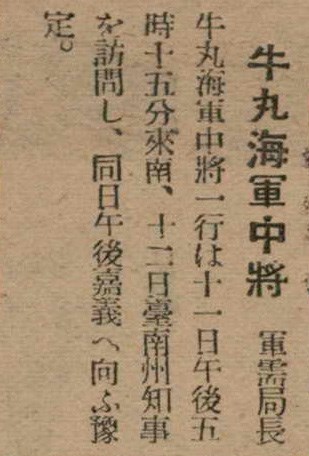 牛丸海軍中將 軍需局長
牛丸海軍中將一行は十一日午後五
時十五分來南、十二日臺南州知事
を訪問し、同日午後嘉義へ向ふ豫
定。